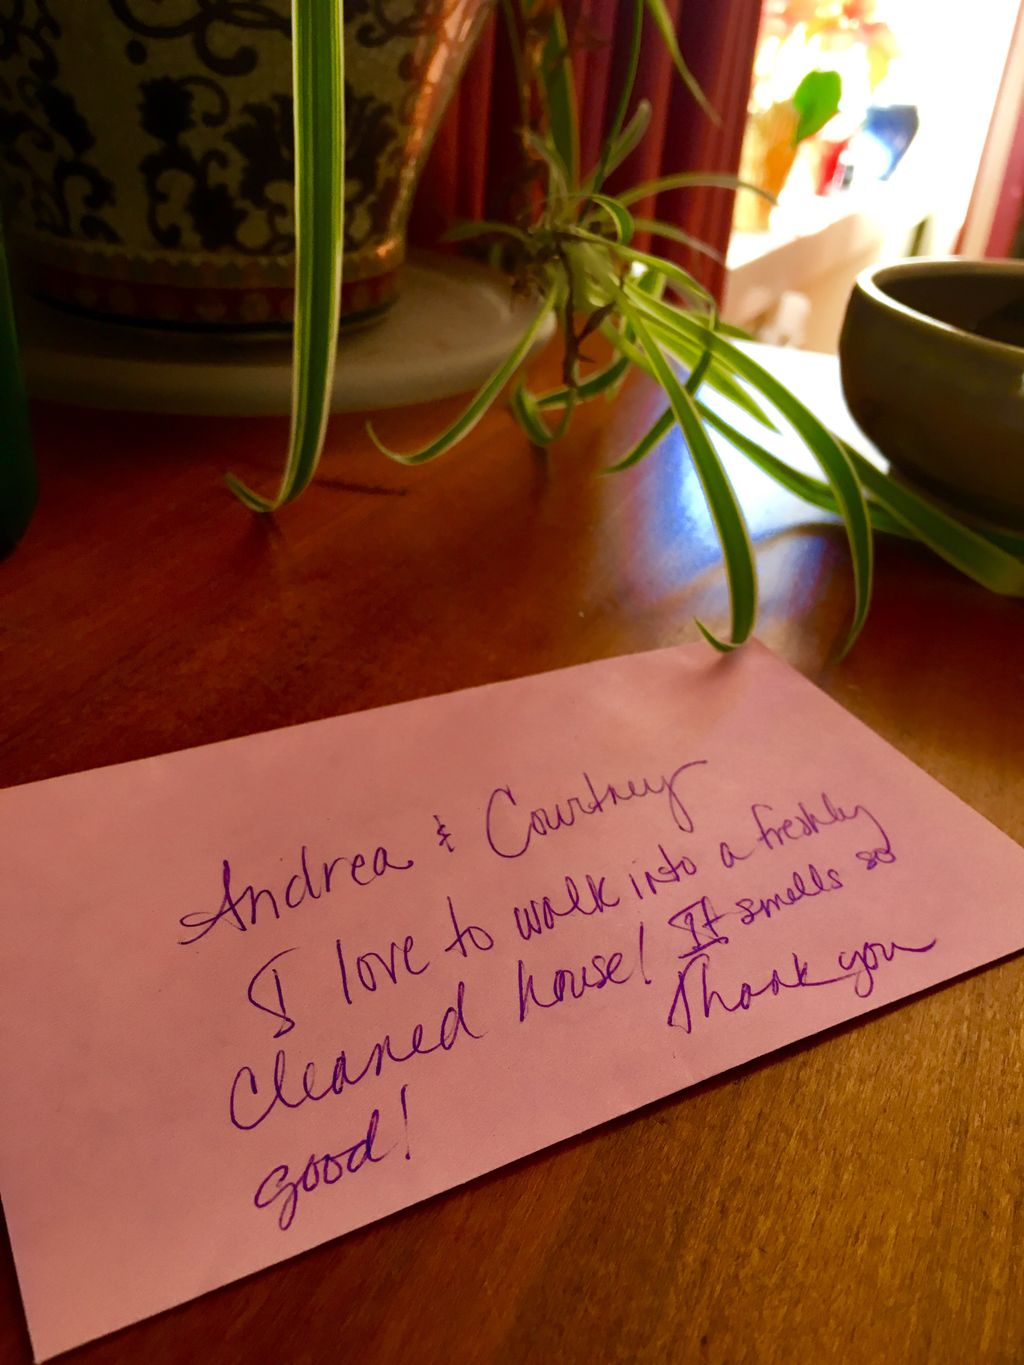 Andrea & Courtney
I love to walk into a freshly
cleaned house! It smells so
good! Thank you